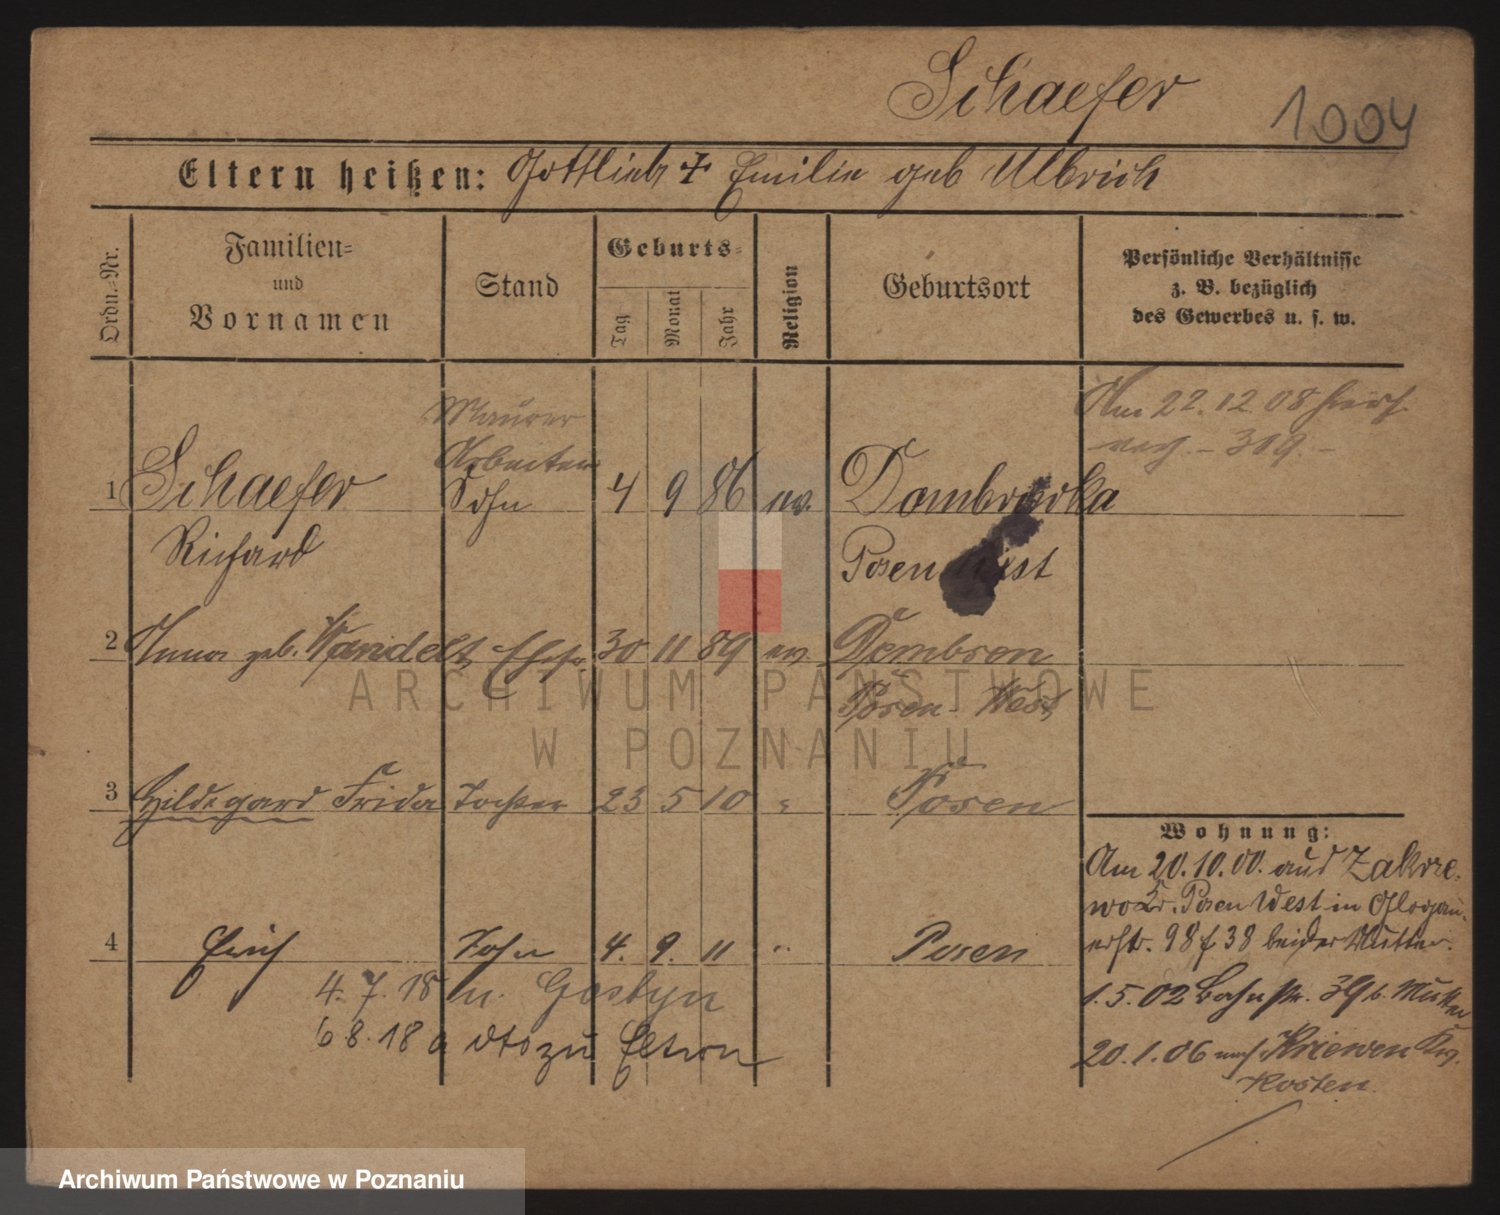 Schaefer
1004
Eltern heißen: Gottlieb + Emilie geb Ulbrich
Ordn.-Nr.
Familien-
und
Vornamen
Stand
Geburts-
Tag
Monat
Jahr
Religion
Geburtsort
Persönliche Verhältnisse
z. B. bezüglich
des Gewerbes u. s. w.
Maurer
Arbeiter
1 Schaefer Sohn 4 9 86 ev. Dombrowka
Richard Posen West
Am 22.12.08
319.
2 Anna geb. Wandelt Ehefr 30 11 89 ev Dembsen
Posen West
3 Hildegard Frida Tochter 23 5 10 " Posen
4 Erich Sohn 4. 9. 11 " Posen
4.7.18 n. Gostyn
6 8.18 a dto zu Eltern
Wohnung:
Am 20.10.00. aus Zakrze-
wo Kr. Posen West in Glogau-
erstr. 98 bei der Mutter.
1.5.02 Bahnstr. 39 b. Mutter
20.1.06 nach Kriewen Krs.
Kosten.
ARCHIWUM PAŃSTWOWE
W POZNANIU
Archiwum Państwowe w Poznaniu